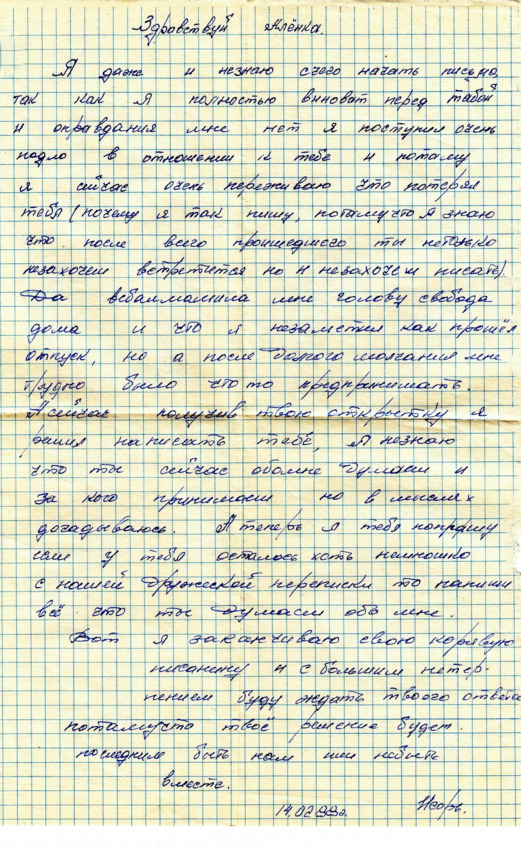 Здравствуй Алёнка.
Я даже и незнаю счего начать письмо,
так как я полностью виноват перед табой
и оправдания мне нет я поступил очень
подло в отношении к тебе и потаму
я сейчас очень переживаю что потерял
тебя (почему я так пишу, потамучто я знаю
что после всего прошедшего ты нетолько
незахочеш встретится но и незахочеш писать)
Да взбаламашила мне голову свобода
дома и что я незаметил как прошёл
отпуск, но а после долгого молчания мне
трудно было что то предпринимать.
А сейчас получив твою открытку я
решил написать тебе, я незнаю
что ты сейчас обомне думаеш и
за кого принимаеш но в мыслях
догадываюсь. А теперь я тебя попрашу
если у тебя осталось хоть немношко
с нашей дружеской переписки то напиши
всё что ты думаеш объ мне.
Вот я заканчиваю свою корявую
писанену и с большим нетер-
пением буду ждать твоего ответа
потамушто твоё решение будет
последним быть нам или небыть
вместе.
Игорь.